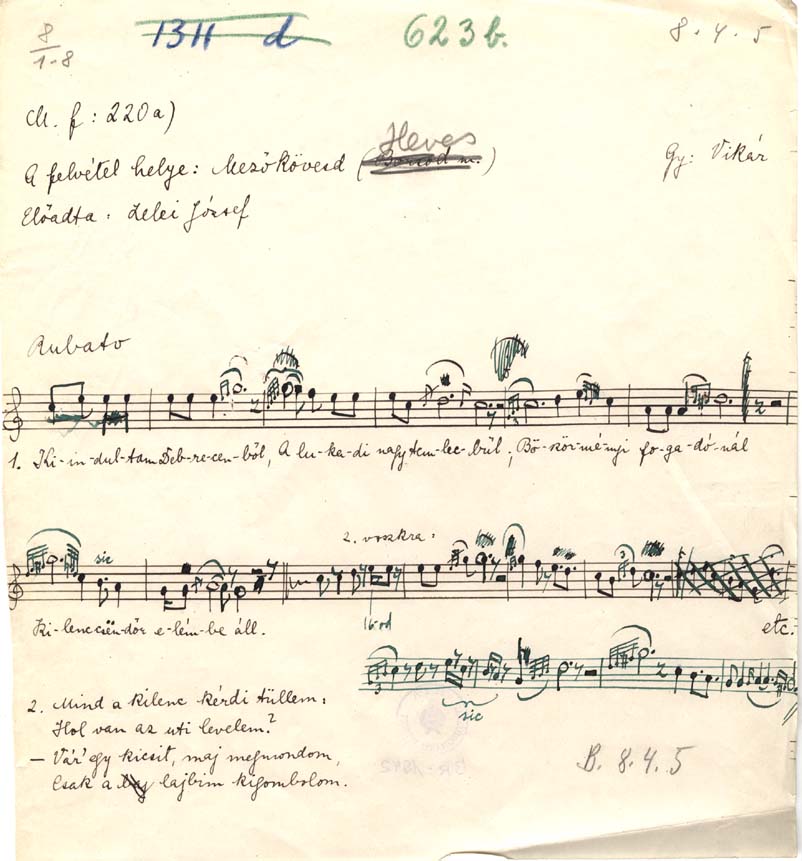 8/1-8 1311 d 623 b. 8.4.5
M. f: 220a)
A felvétel helye: Mezőkövesd (Heves Borsod m.) Gy: Vikár
Előadta: Lelei József
Rubato
1. Ki-in-dul-tam Deb-re-cen-ből, A lu-ka-di nagy tem-lec-bül, Bö-kör-mé-nyi fo-ga-dó-nál
sic 2. voszkra:
3
Ki-lenc csën-dőr e-lém-be áll. 16-od etc.
3 sic
2. Mind a kilenc kérdi tüllem:
Hol van az uti levelem?
– Vár' egy kicsit, maj megmondom,
Csak a lajbim kigombolom.
B. 8.4.5
BR-1342